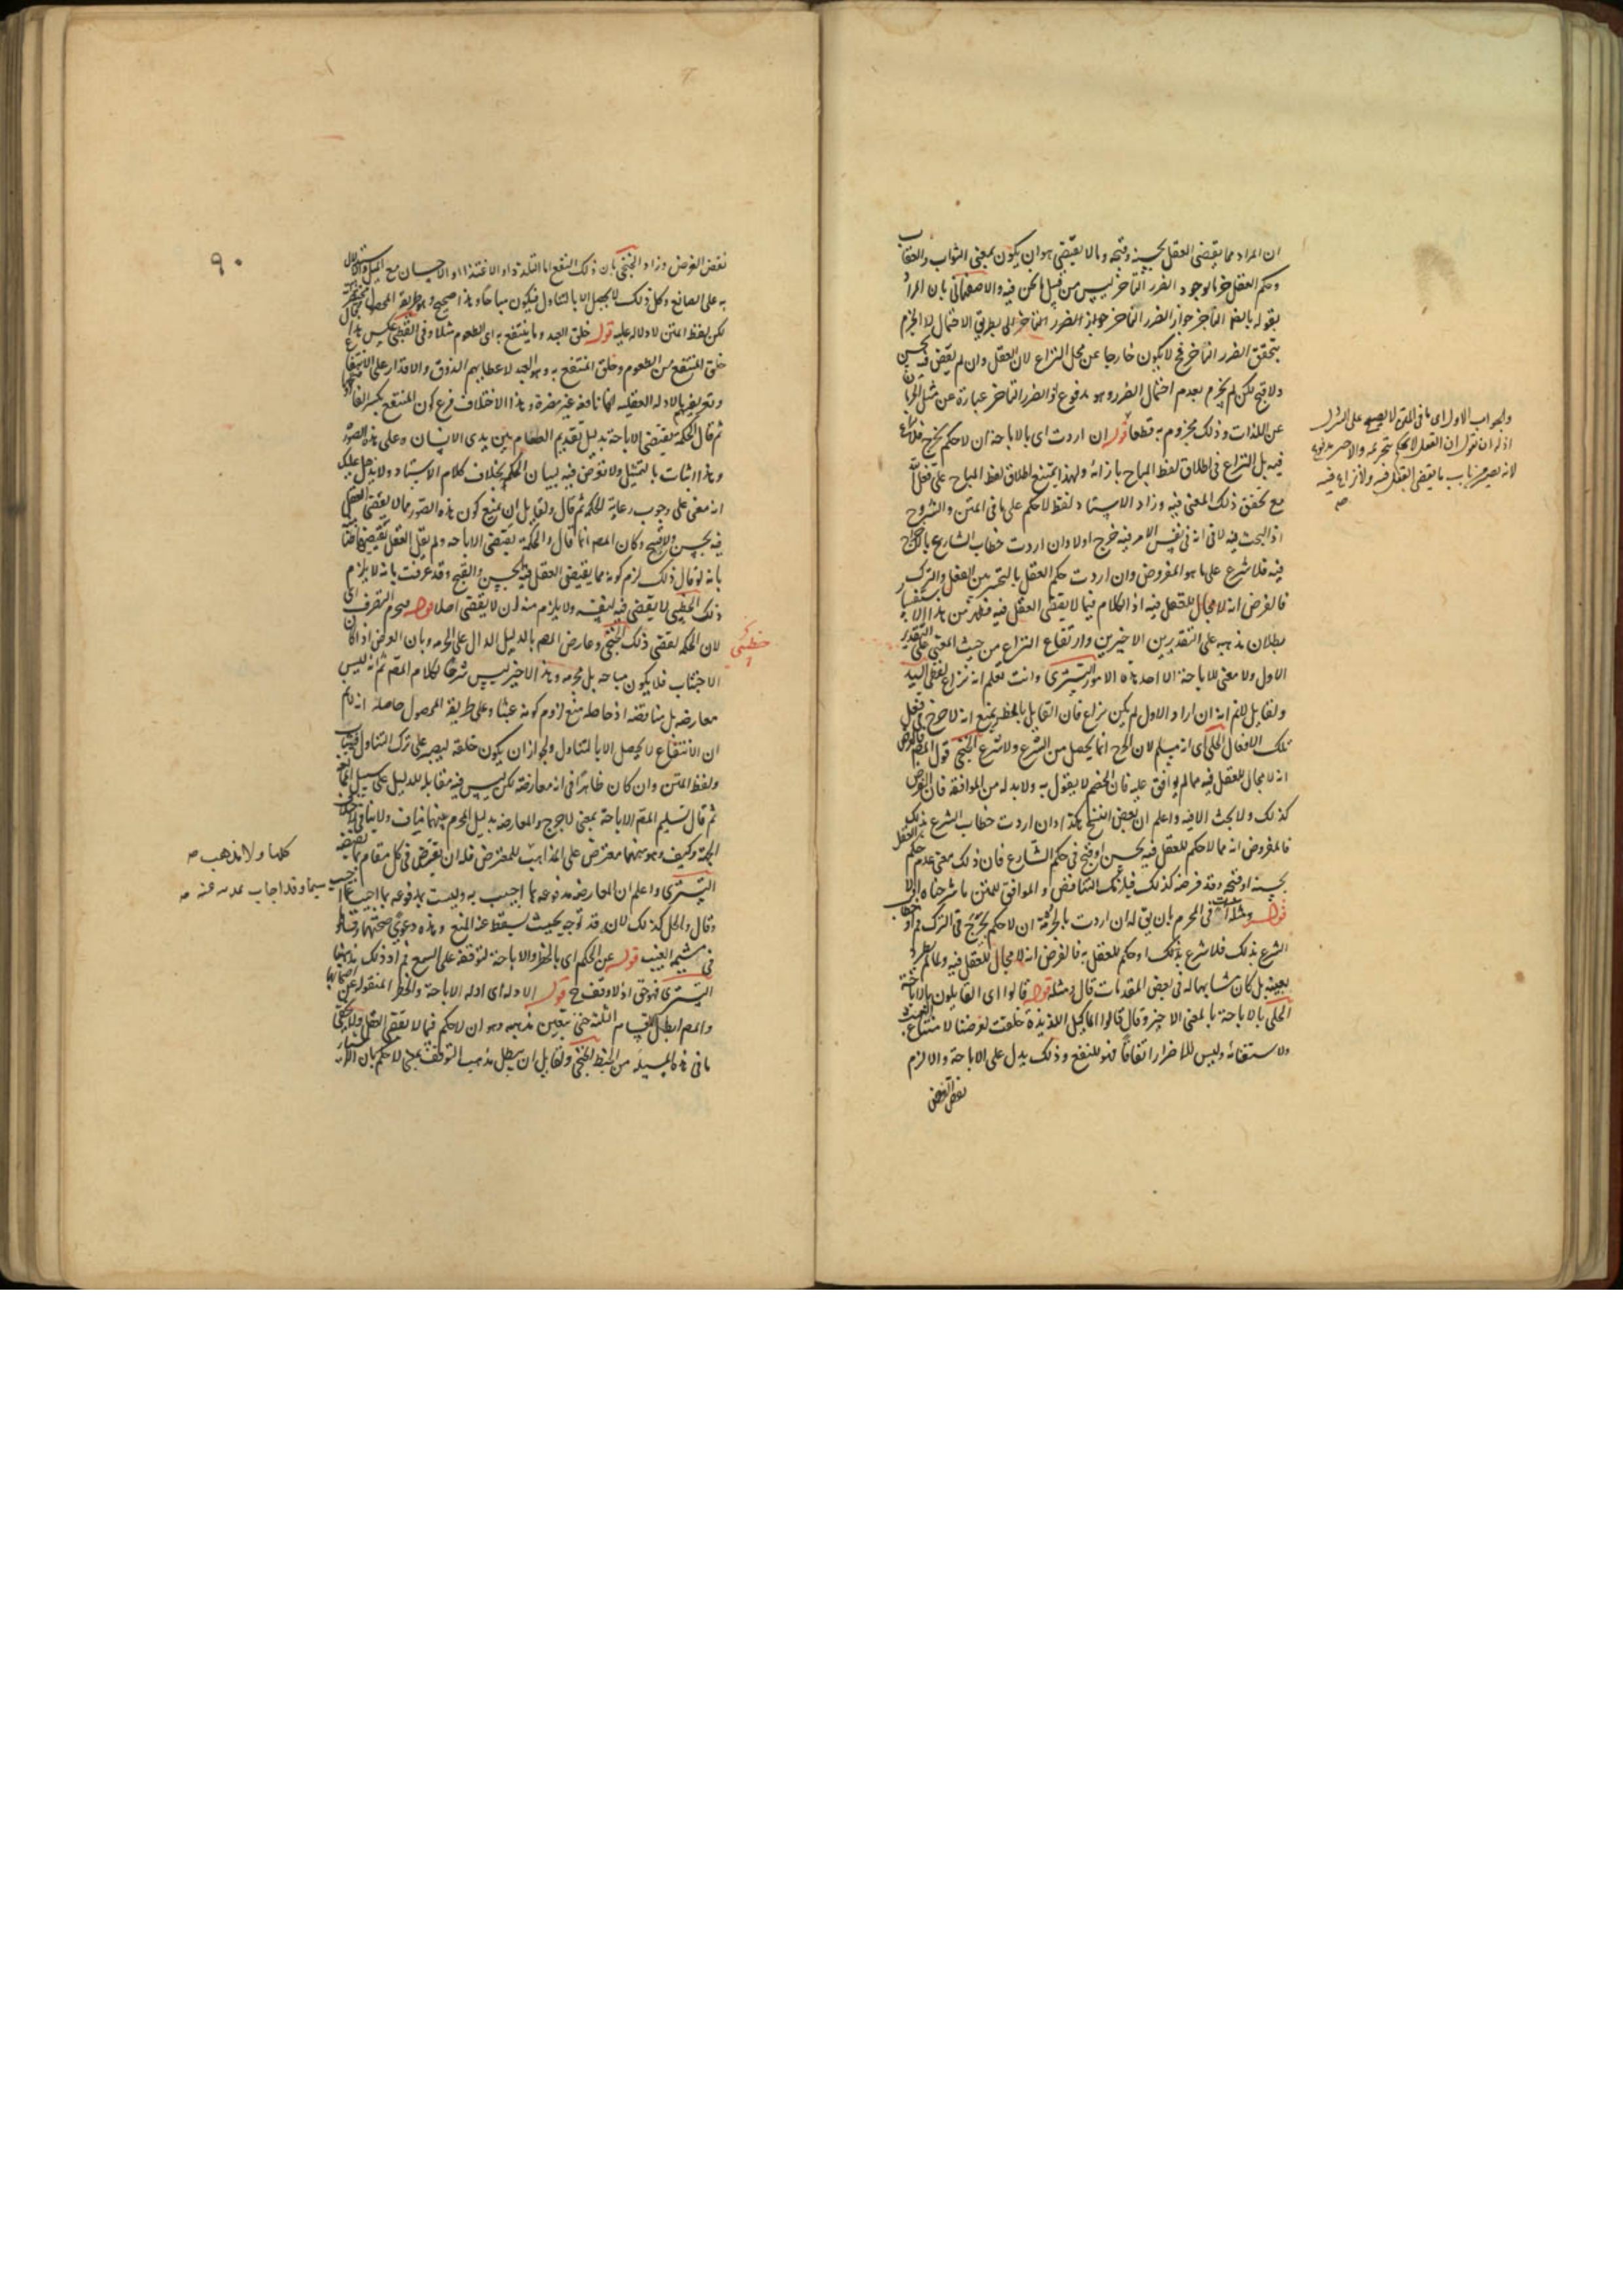 ان المراد مما يقضي العقل بحسنه وقبحه وما لا يقضي هو ان يكون بمعنى الثواب والعقاب
وحكم العقل جزما بوجود الضرر المتأخر ليس من قبيل ما نحن فيه والاصفهاني بان المراد
بقوله بالضرر المتأخر جواز الضرر المتأخر جواز الضرر المتأخر اى بطريق الاحتمال لا الجزم
بتحقق الضرر المتأخر فح لا يكون خارجا عن محل النزاع لان العقل وان لم يقض فيه بحسن
ولا قبح لكن لم يجزم بعدم احتمال الضرر وهو مدفوع اذ الضرر المتأخر عبارة عن مثل الحرمان
عن اللذات وذلك مجزوم به قطعا قوله ان اردت اى بالاباحة ان لا حكم بحرج فلا نزاع
فيه بل النزاع فى اطلاق لفظ المباح بازائه ولهذا يمتنع اطلاق لفظ المباح على فعل الله
مع تحقق ذلك المعنى فيه وزاد الاستاد لفظ لا حكم على ما فى المتن والشروح
اذ البحث فيه لا فى انه فى نفس الامر فيه حرج اولا وان اردت خطاب الشارع بالاحراج
فيه فلا شرع على ما هو المفروض وان اردت حكم العقل بالتخيير بين الفعل والترك
فالفرض انه لا مجال للعقل فيه اذ الكلام فيما لا يقضى العقل فيه فظهر من هذا الاستفسار
بطلان مذهبه على التقديرين الاخيرين وارتفاع النزاع من حيث المعنى على التقدير
الاول ولا معنى للاباحة الا احد هذه الامور التسترى وانت تعلم انه نزاع لفظى السيد
ولقايل لانم انه ان اراد الاول لم يكن نزاع فان القايل بالحظر يمنع انه لا حرج فى فعل
تلك الافعال الحلى اى انه مسلم لان الحرج انما يحصل من الشرع ولا شرع الخنجى قول المص فالفرض
انه لا مجال للعقل فيه مما لم يوافق عليه فان الخصم لا يقول به ولا بد له من الموافقة فان الفرض
كذلك ولا بحث الا فيه واعلم ان بعض النسخ هكذا وان اردت خطاب الشرع بذلك
فالمفروض انه مما لا حكم للعقل فيه بحسن او قبح فى حكم الشارع فان ذلك معنى عدم حكم العقل
بحسنه او قبحه وقد فرضه كذلك فيلزمك التناقض والموافق للمتن ما شرحناه اولا
قوله ومثله فى المحرم بان يق له ان اردت بالحرمة ان لا حكم بحرج فى الترك او خطاب
الشرع بذلك فلا شرع بذلك او حكم للعقل به فالفرض انه لا مجال للعقل فيه ولما لم يطرد
بعينه بل كان مشابها له فى بعض المقدمات قال ومثله قوله قالوا اى القايلون بالاباحة
الحلى بالاباحة بالمعنى الاخير وقال قالوا المآكل اللذيذة خلقت لغرضنا لامتناع العبث
ولاستغنائه وليس للاضرار اتفاقا فهو للنفع وذلك يدل على الاباحة والا لزم
نقض الغرض
والجواب الاول اى ما فى المتن لا يصح على الشرك
اذ له ان يقول ان العقل لا يحكم بتحريمه والاخير مدفوع
لانه يصير من باب ما يقضى العقل فيه ولا نزاع فيه
صه
٩٠
نقض الغرض وزاد الخنجى بان ذلك النفع اما التلذذ او الاغتذاء او الاجتناب مع الميل والاستدلال
به على الصانع وكل ذلك لا يحصل الا بالتناول فيكون مباحا وهذا صحيح وهو طريقة المحصول
لكن لفظ المتن لا دلالة عليه قوله خلق العبد وما ينتفع به اى الطعوم مثلا وفى القطبى عكس هذا
خلق المنتفع من الطعوم وخلق المنتفع به وهو العبد لاعطائهم الذوق والاقدار على الانتفاع
وتعريفهم بالادلة العقلية انها نافعة غير مضرة وهذا الاختلاف فرع كون المنتفع بكسر الفاء او فتحها
ثم قال الحكمة تقتضى الاباحة بدليل تقديم الطعام بين يدى الانسان وعلى هذه الصور
وهذا اثبات بالتمثيل ولا تعرض فيه لبيان الحكم بخلاف كلام الاستاد ولا يذهل عليك
انه مبنى على وجوب رعاية الحكمة ثم قال ولقايل ان يمنع كون هذه الصور مما لا يقضى العقل
فيه بحسن ولا قبح وكان المص انما قال والحكمة تقتضى الاباحه ولم يقل العقل يقتضيها ظنا
بانه لو قال ذلك لزم كونه مما يقتضى العقل فيه بحسن والقبح وقد عرفت بانه لا يلزم
ذلك الخطيبى لا يقضى فيه لنفسه ولا يلزم منه ان لا يقضى اصلا قوله فيحرم التصرف اى
لان الحكمة تقتضى ذلك الخنجى وعارض المص بالدليل الدال على الحرمه وبان الغرض اذا كان
الاجتناب فلا يكون مباحه بل محرمه وهذا الاخير ليس شرحا لكلام المص ثم انه ليس
معارضه بل مناقضه اذ حاصله منع لزوم كونه عبثا وعلى طريقة المحصول حاصله انه لانم
ان الانتفاع لا يحصل الا بالتناول ولجواز ان يكون خلقه ليصبر على ترك التناول فيثاب
ولفظ المتن وان كان ظاهرا فى انه معارضة لكن ليس فيه مقابلة للدليل على سبيل الممانعة
ثم قال تسليم المص الاباحة بمعنى لا حرج والمعارضه بدليل المحرم بينهما تناف ولا ينافى
وكيف وهو منهما معترض على المذاهب للمعترض فله ان يعترض فى كل مقام بما يقتضيه
التسترى واعلم ان المعارضه مدفوعه بما اجيب به وليست مدفوعه بما اجيب
وقال والحل كذلك لانه قد توجه بحيث يسقط عنه المنع وهذه دعوى صحتها
فى مشيمة الغيب قوله عن الحكم اى بالحظر والاباحة لتوقفه على السمع فمراد ذلك مذهبنا
التسترى فهو حق اذ لا وقف ح قوله الادلة اى ادلة الاباحة والحظر المنقوله عن اصحابها
والمص ابطل الاقسام الثلثة حتى يتعين مذهبه وهو ان لا حكم فيما لا يقضى العقل ولا يخفى
ما فى هذه المسيلة من الخبط الخنجى ولقايل ان يبطل مذهب التوقف بمعنى لا حكم بان
خطيبى
كلها ولا مذهب صه
سيما وقد اجاب عنه صه